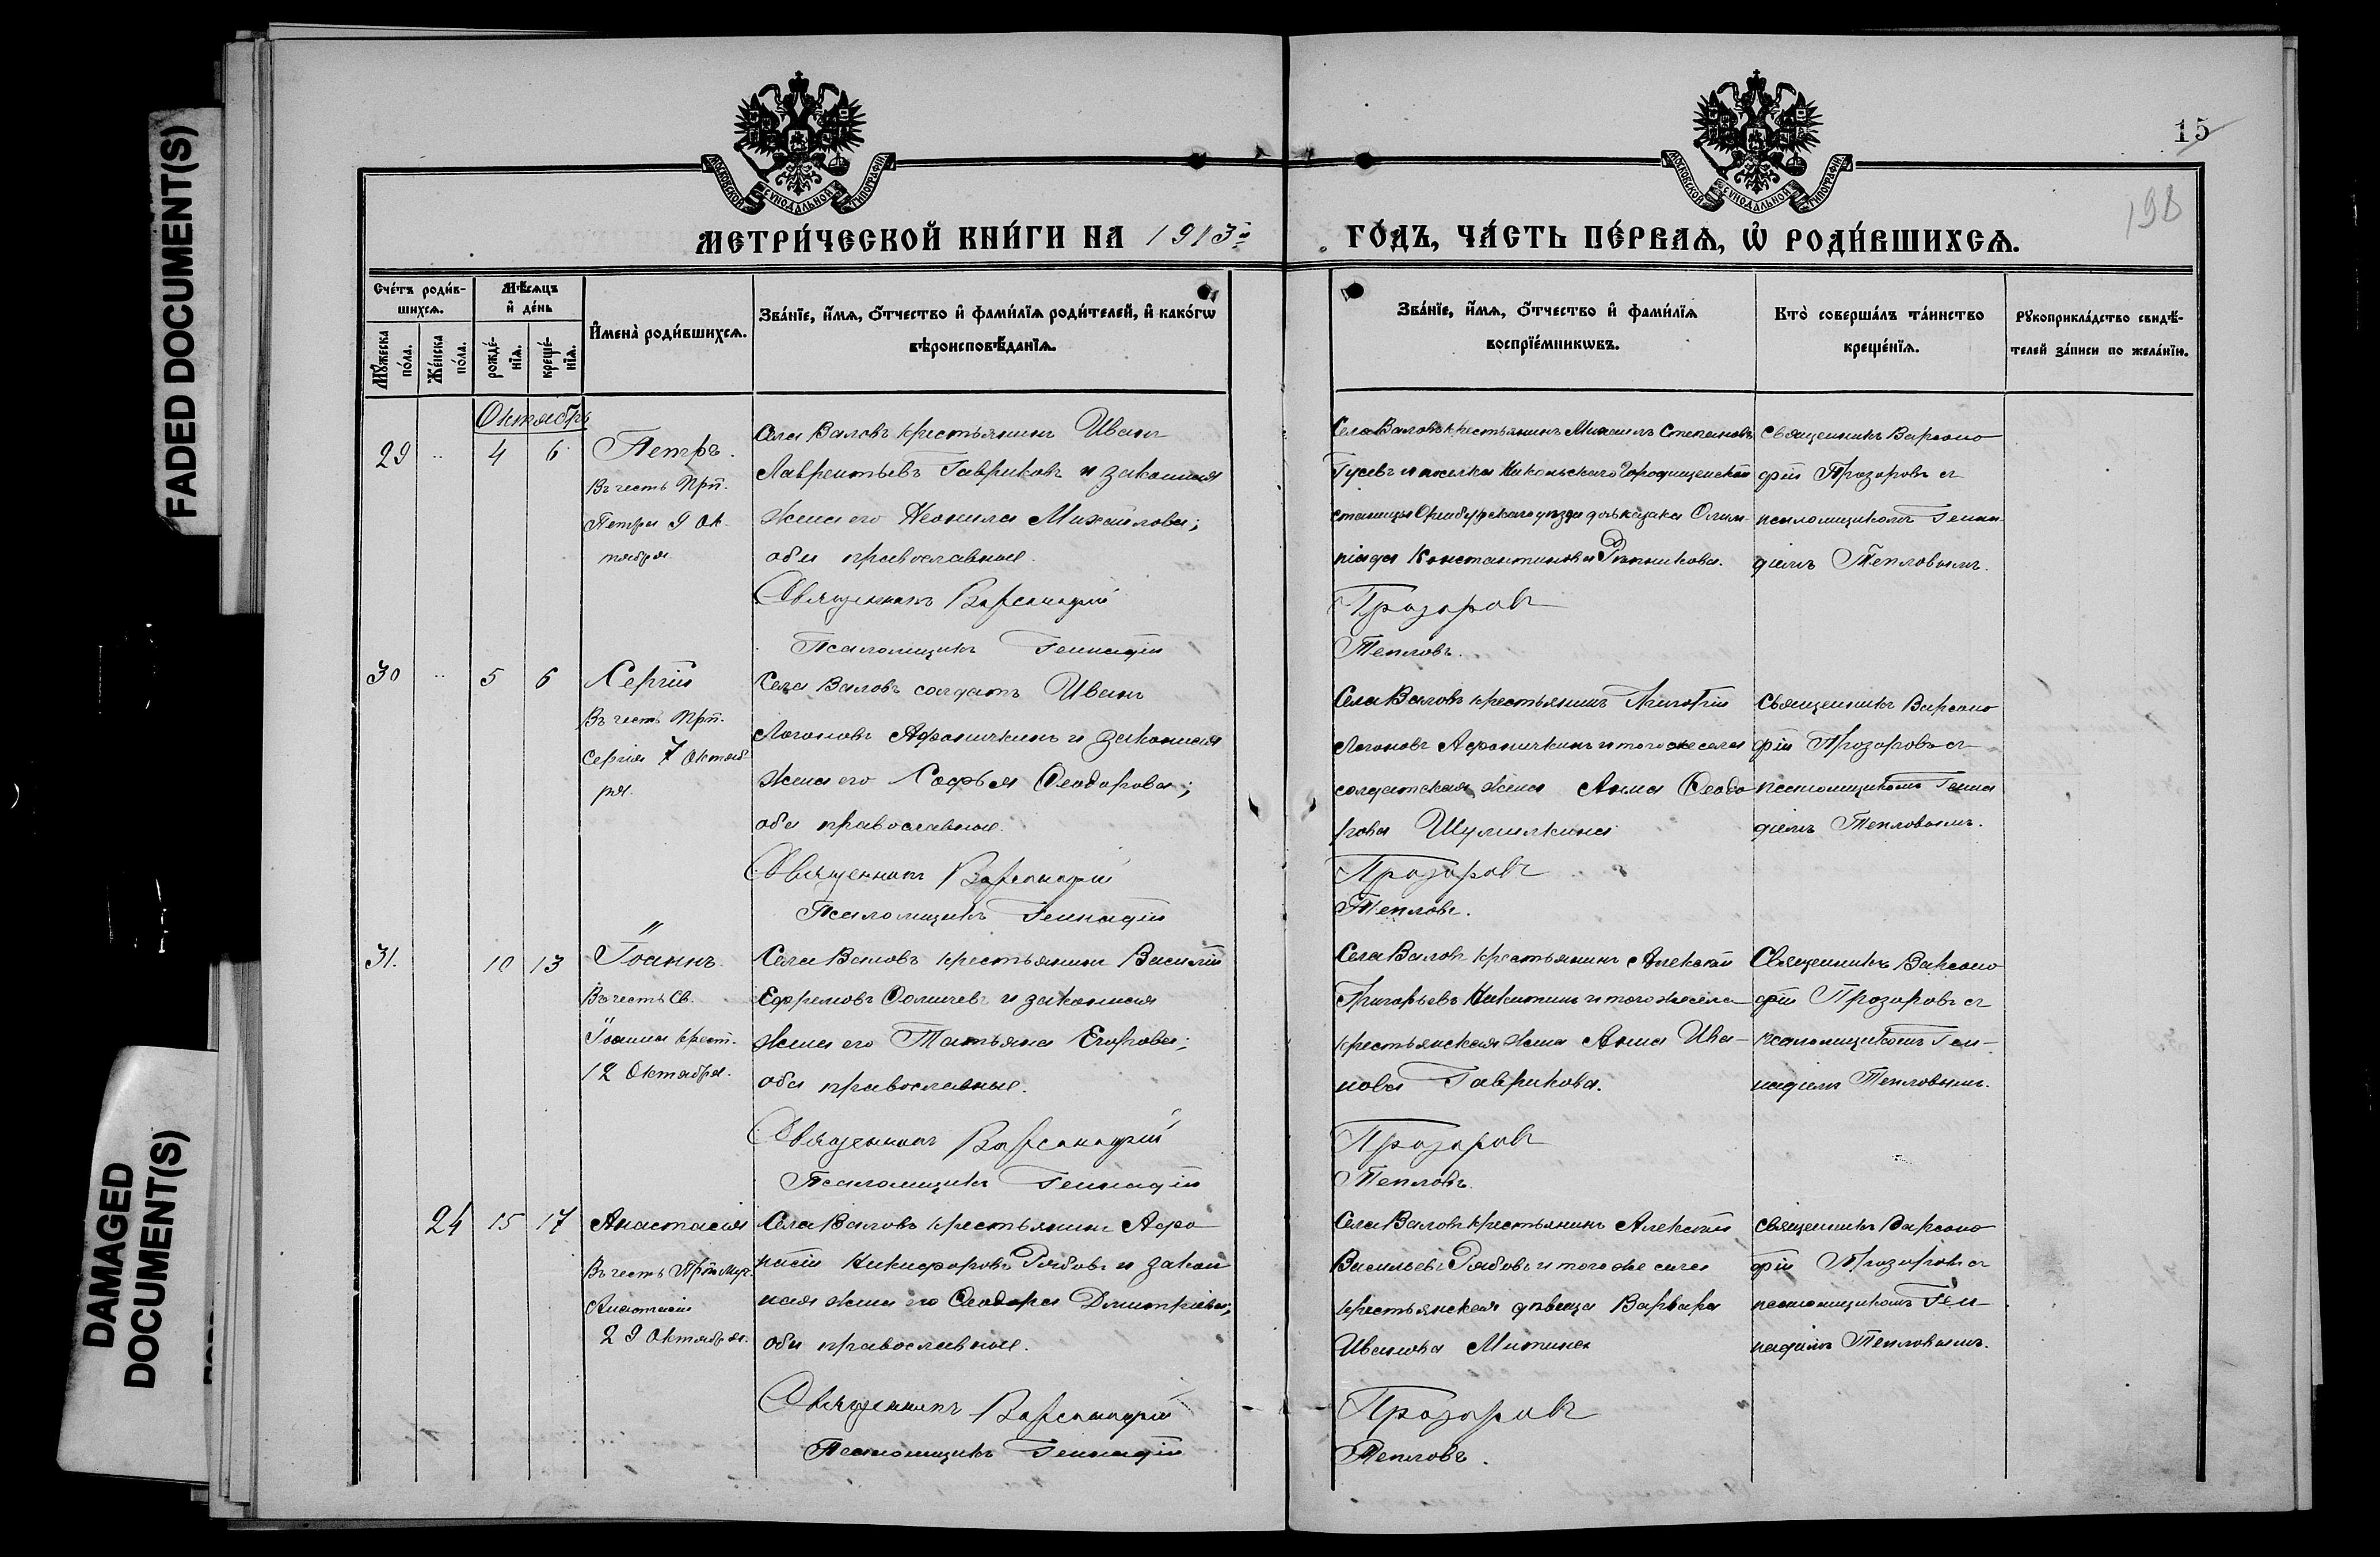 FADED DOCUMENT(S)
DAMAGED
DOCUMENT(S)
МОСКОВСКОЙ СѴНОДАЛЬНОЙ ТИПОГРАФІИ
МОСКОВСКОЙ СѴНОДАЛЬНОЙ ТИПОГРАФІИ
15
198
МЕТРИ́ЧЕСКОЙ КНИ́ГИ НА 1913й
ГО́ДЪ, ЧА́СТЬ ПЕ́РВАѦ, Ѡ҆ РОДИ́ВШИХСѦ.
Сче́тъ роди́в-
шихсѧ.
Мѣ́сѧцъ
и҆ де́нь
Мꙋ́жеска
по́ла.
Же́нска
по́ла.
рожде́-
нїѧ.
креще́-
нїѧ.
И҆мена̀ роди́вшихсѧ.
Зва́нїе, и҆́мѧ, ѻ҆́тчество и҆ фами́лїѧ роди́телей, и҆ како́гѡ
вѣроисповѣ́данїѧ.
Зва́нїе, и҆́мѧ, ѻ҆́тчество и҆ фами́лїѧ
воспрїе́мникѡвъ.
Кто̀ соверша́лъ та́инство
креще́нїѧ.
Рꙋкоприкла́дство свидѣ́-
телей за́писи по жела́нїю.
Октябрь
29 4 6 Петръ.
Въ честь Прп.
Петра 9 Ок-
тября
Села Валовъ крестьянинъ Иванъ
Лаврентьевъ Гавриковъ и законная
жена его Неонила Михайлова;
оба православные.
Священникъ Варсонофій
Псаломщикъ Геннадій
Села Валовъ крестьянинъ Михаилъ Степановъ
Гусевъ и поселка Никольскаго Городищенской
станицы Оренбургскаго уѣзда дочь казака Олим-
піада Константинова Рѣпникова.
Прозоровъ
Тепловъ.
Священникъ Варсоно
фій Прозоровъ съ
псаломщикомъ Генна
діемъ Тепловымъ.
30 5 6 Сергій
Въ честь Прп.
Сергія 7 Октяб-
ря.
Села Валовъ солдатъ Иванъ
Логоновъ Афоничкинъ и законная
жена его Софья Ѳеодорова;
оба православные.
Священникъ Варсонофій
Псаломщикъ Геннадій
Села Валовъ крестьянинъ Григорій
Логоновъ Афоничкинъ и того же села
солдатская жена Анна Ѳеодо
рова Шумилкина
Прозоровъ
Тепловъ.
Священникъ Варсоно
фій Прозоровъ съ
псаломщикомъ Генна
діемъ Тепловымъ.
31. 10 13 Іоаннъ.
Въ честь Св.
Іоанна Крест.
12 Октября.
Села Валовъ крестьянинъ Василій
Ефремовъ и законная
жена его Татьяна Егорова;
оба православные.
Священникъ Варсонофій
Псаломщикъ Геннадій
Села Валовъ крестьянинъ Алексѣй
Григорьевъ Никитинъ и того же села
крестьянская жена Анна Ива-
нова Гаврикова.
Прозоровъ
Тепловъ
Священникъ Варсоно
фій Прозоровъ съ
псаломщикомъ Ген-
надіемъ Тепловымъ.
24 15 17 Анастасія
Въ честь Прп. Муч.
Анастасіи
29 Октября.
Села Валовъ крестьянинъ Афа-
насій Никифоровъ Рябовъ и закон
ная жена его Ѳеодора Димитріева;
оба православные.
Священникъ Варсонофій
Псаломщикъ Геннадій
Села Валовъ крестьянинъ Алексѣй
Васильевъ Рябовъ и того же села
крестьянская дѣвица Варвара
Иванова Митина
Прозоровъ
Тепловъ.
Священникъ Варсоно
фій Прозоровъ съ
псаломщикомъ Ген-
надіемъ Тепловымъ.